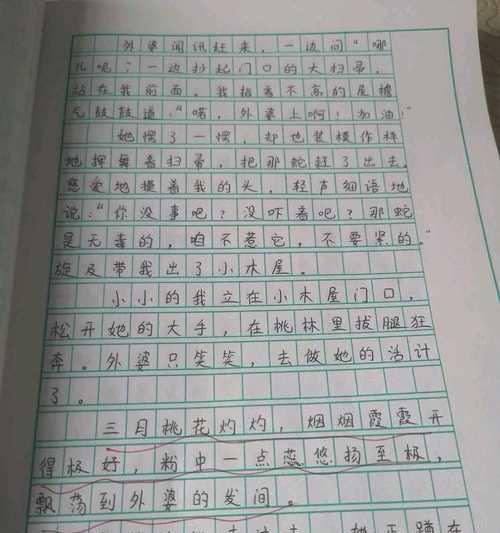 外婆闻讯赶来，一边问“哪
儿呢？一边抄起门口的大扫帚，
站在我前面。我指着不高的屋檐
气鼓鼓道：“喏，外婆上啊！加油！”
她愣了一愣，却也装模作样
地挥舞着扫帚，把那蛇赶了出去。
慈爱地摸着我的头，轻声细语地
说：“你没事吧？没吓着吧？那蛇
是无毒的，咱不惹它，不要紧的。”
旋及带我出了小木屋。
小小的我立在小木屋门口，
松开她的大手，在桃林里拔腿狂
奔。外婆只笑笑，去做她的活计
了。
三月桃花灼灼，烟烟霞霞开
得极好，粉中一点蕊悠扬至极，
飘荡到外婆的发间。
她正蹲在